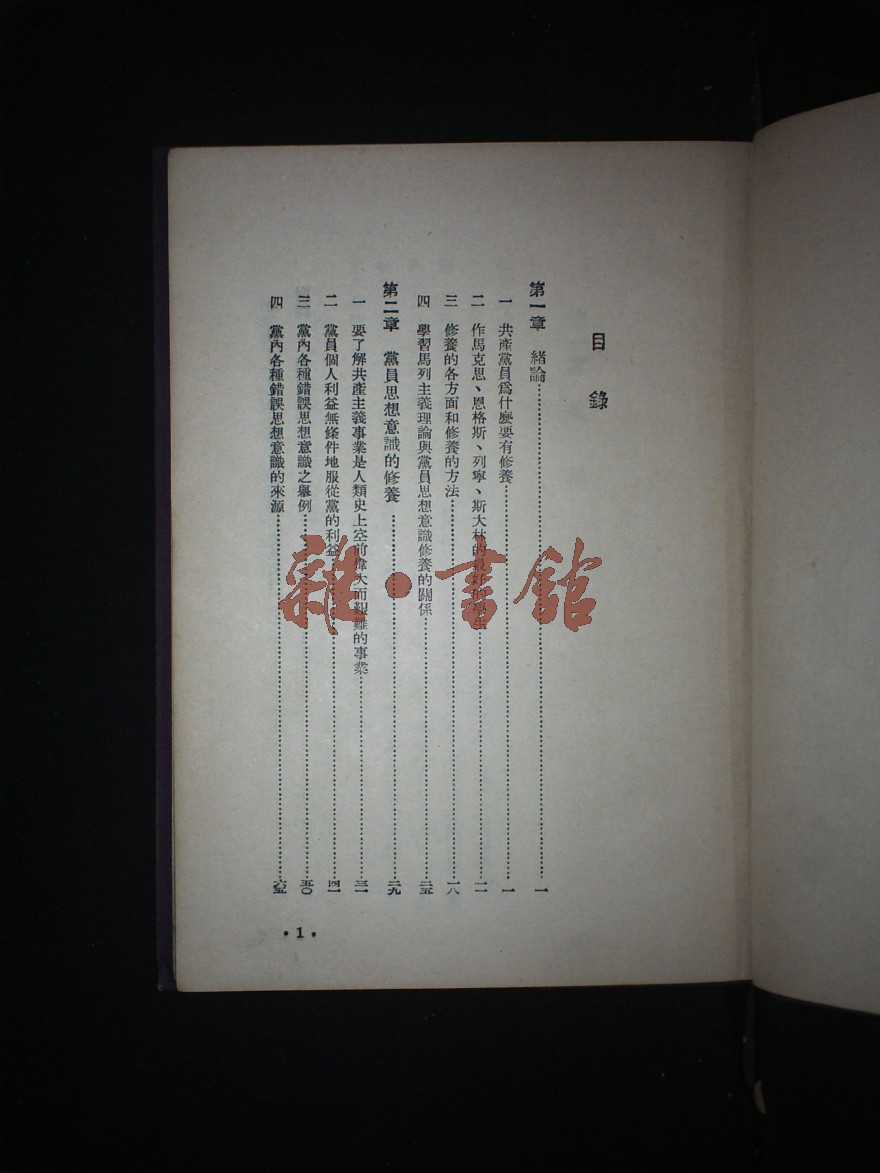 目錄
第一章 緒論…………一
一 共產黨員爲什麼要有修養…………一
二 作馬克思、恩格斯、列寧、斯大林的最好的學生…………一一
三 修養的各方面和修養的方法…………一八
四 學習馬列主義理論與黨員思想意識修養的關係…………二五
第二章 黨員思想意識的修養…………二九
一 要了解共產主義事業是人類史上空前偉大而艱難的事業…………三一
二 黨員個人利益無條件地服從黨的利益…………四一
三 黨內各種錯誤思想意識之舉例…………五〇
四 黨內各種錯誤思想意識的來源…………六五
•1•
雜•書館